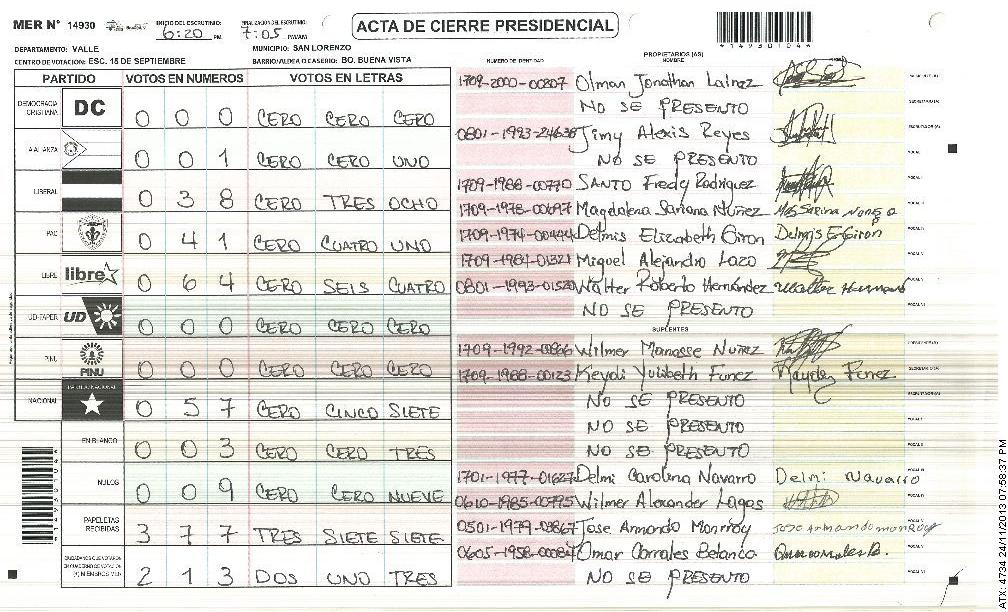 MER N° 14930 INICIO DEL ESCRUTINIO: 6:20 PM FINALIZACION DEL ESCRUTINIO: 7:05 PM/AM ACTA DE CIERRE PRESIDENCIAL *14930104*
DEPARTAMENTO: VALLE MUNICIPIO: SAN LORENZO
CENTRO DE VOTACION: ESC. 15 DE SEPTIEMBRE BARRIO/ALDEA O CASERIO: BO. BUENA VISTA
PARTIDO VOTOS EN NUMEROS VOTOS EN LETRAS
DEMOCRACIA CRISTIANA DC 0 0 0 CERO CERO CERO
ALIANZA 0 0 1 CERO CERO UNO
LIBERAL 0 3 8 CERO TRES OCHO
PAC 0 4 1 CERO CUATRO UNO
LIBRE libre 0 6 4 CERO SEIS CUATRO
UD-FAPER UD 0 0 0 CERO CERO CERO
PINU PINU 0 0 0 CERO CERO CERO
NACIONAL PARTIDO NACIONAL 0 5 7 CERO CINCO SIETE
EN BLANCO 0 0 3 CERO CERO TRES
NULOS 0 0 9 CERO CERO NUEVE
PAPELETAS RECIBIDAS 3 7 7 TRES SIETE SIETE
CIUDADANOS QUE VOTARON EN CUADERNO DE VOTACION (+) MIEMBROS MER 2 1 3 DOS UNO TRES
NUMERO DE IDENTIDAD PROPIETARIOS (AS) NOMBRE
1709-2000-00807 Olman Jonathan Lainez
NO SE PRESENTO
0801-1993-24638 Jimy Alexis Reyes
NO SE PRESENTO
1709-1988-00770 SANTO Fredy Rodriguez
1709-1978-00697 Magdalena Sariana Nuñez
1709-1974-00444 Delmis Elizabeth Giron Delmis E Giron
1709-1984-01321 Miguel Alejandro Lazo
0801-1993-01520 Walter Roberto Hernández
NO SE PRESENTO
SUPLENTES
1709-1992-00866 Wilmer Manasse Nuñez
1709-1988-00123 Keydi Yulibeth Funez Funez
NO SE PRESENTO
NO SE PRESENTO
NO SE PRESENTO
1701-1977-01627 Delmi Carolina Navarro Delmi Navarro
0610-1985-00795 Wilmer Alexander Lagos
0501-1979-03867 Jose Armando Monrroy Jose Armando monRoy
0605-1958-00084 Omar Corrales Betanco
NO SE PRESENTO
ATX: 4734 24/11/2013 07:58:37 PM